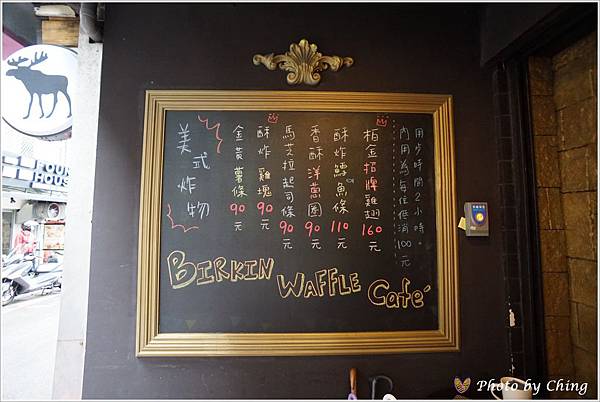 用步時間2小時。
內用為每位低消100元
柏金招牌雞翅160元
酥炸鱈魚條110元
香酥洋蔥圈90元
馬芝拉起司條90元
酥炸雞塊90元
金黃薯條90元
美式炸物
BIRKIN WAFFLE Café
HOUSE
Photo by Ching